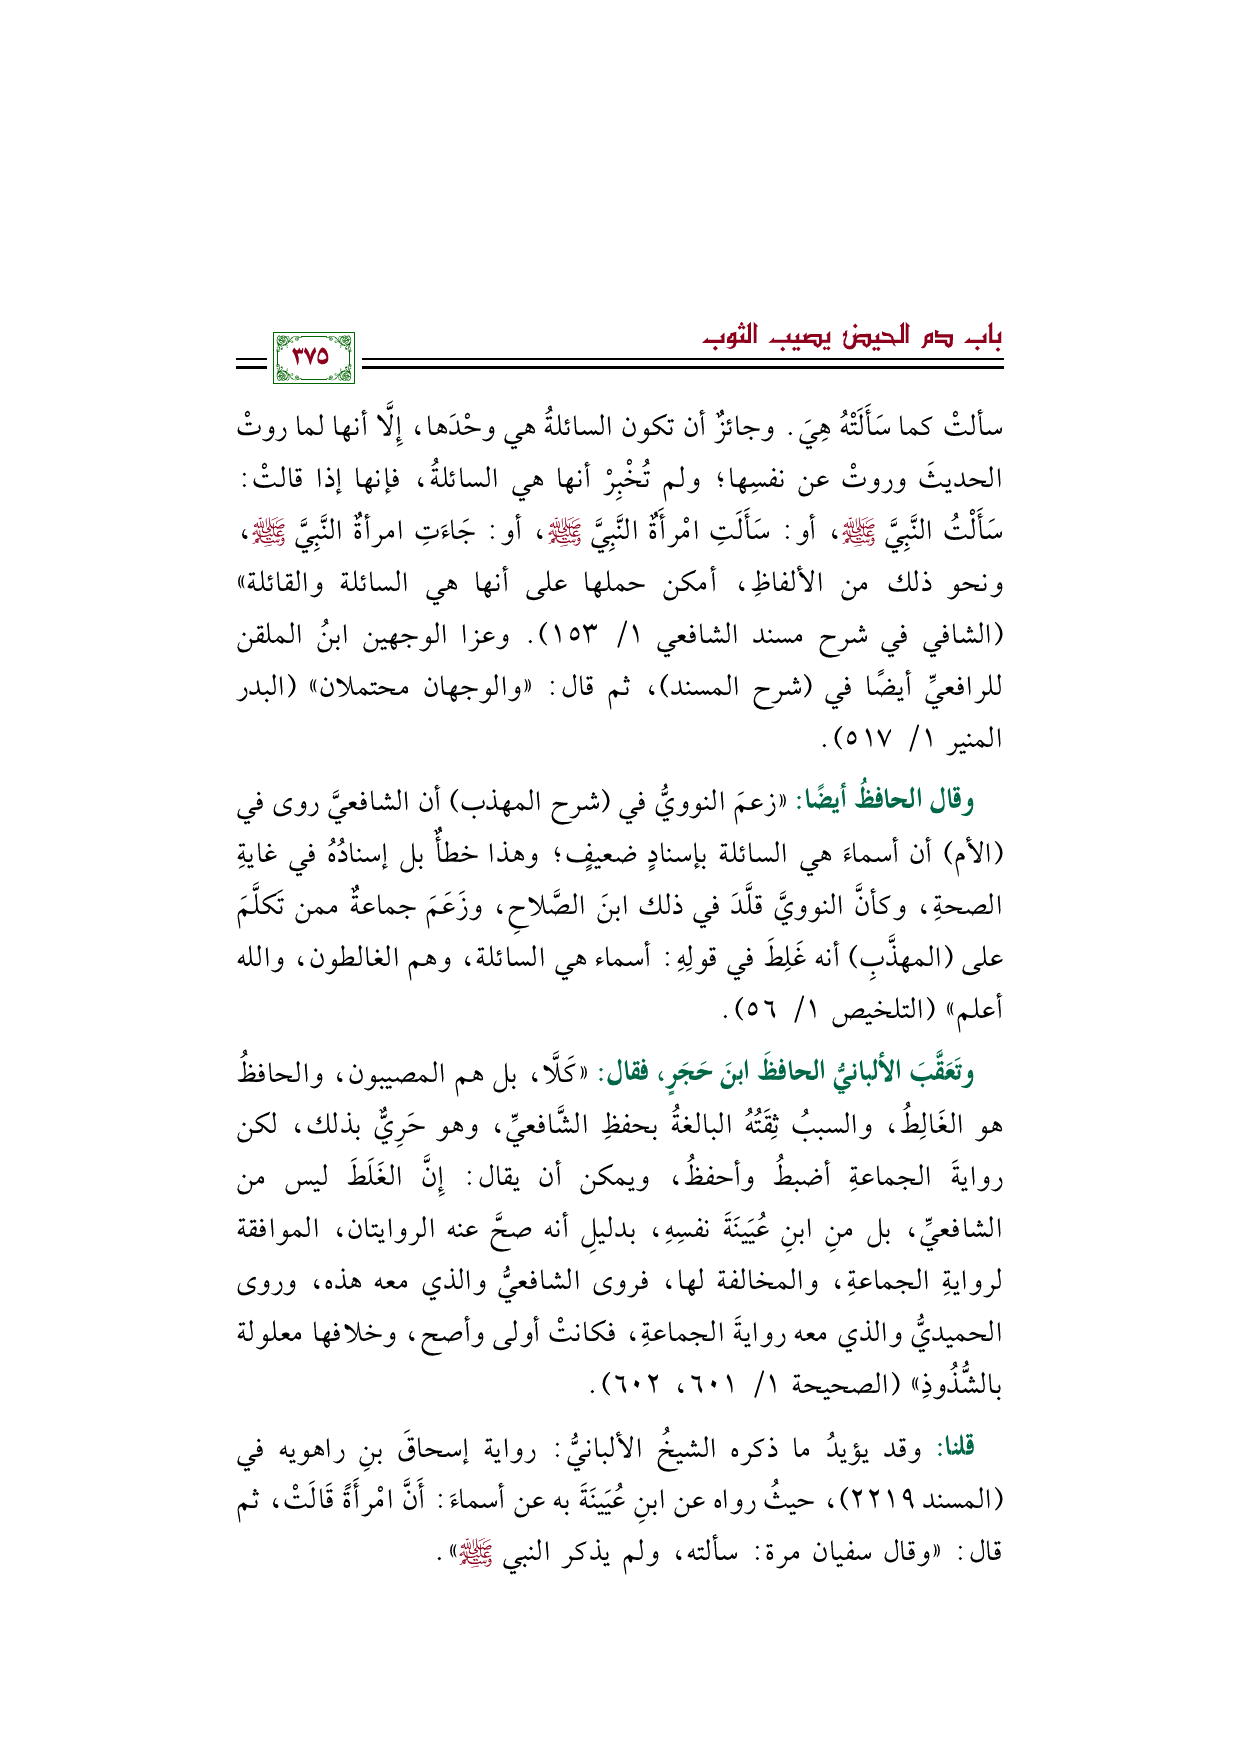 باب دم الحيض يصيب الثوب
٣٧٥
سألتْ كما سَأَلَتْهُ هِيَ. وجائزٌ أن تكون السائلةُ هي وحْدَها، إِلَّا أنها لما روتْ
الحديثَ وروتْ عن نفسِها؛ ولم تُخْبِرْ أنها هي السائلةُ، فإنها إذا قالتْ:
سَأَلْتُ النَّبِيَّ ﷺ، أو: سَأَلَتِ امْرَأَةٌ النَّبِيَّ ﷺ، أو: جَاءَتِ امرأةٌ النَّبِيَّ ﷺ،
ونحو ذلك من الألفاظِ، أمكن حملها على أنها هي السائلة والقائلة»
(الشافي في شرح مسند الشافعي ١/ ١٥٣). وعزا الوجهين ابنُ الملقن
للرافعيِّ أيضًا في (شرح المسند)، ثم قال: «والوجهان محتملان» (البدر
المنير ١/ ٥١٧).
وقال الحافظُ أيضًا: «زعمَ النوويُّ في (شرح المهذب) أن الشافعيَّ روى في
(الأم) أن أسماءَ هي السائلة بإسنادٍ ضعيفٍ؛ وهذا خطأٌ بل إسنادُهُ في غايةِ
الصحةِ، وكأنَّ النوويَّ قلَّدَ في ذلك ابنَ الصَّلاحِ، وزَعَمَ جماعةٌ ممن تَكلَّمَ
على (المهذَّبِ) أنه غَلِطَ في قولِهِ: أسماء هي السائلة، وهم الغالطون، والله
أعلم» (التلخيص ١/ ٥٦).
وتَعَقَّبَ الألبانيُّ الحافظَ ابنَ حَجَرٍ، فقال: «كَلَّا، بل هم المصيبون، والحافظُ
هو الغَالِطُ، والسببُ ثِقَتُهُ البالغةُ بحفظِ الشَّافعيِّ، وهو حَرِيٌّ بذلك، لكن
روايةَ الجماعةِ أضبطُ وأحفظُ، ويمكن أن يقال: إِنَّ الغَلَطَ ليس من
الشافعيِّ، بل منِ ابنِ عُيَينَةَ نفسِهِ، بدليلِ أنه صحَّ عنه الروايتان، الموافقة
لروايةِ الجماعةِ، والمخالفة لها، فروى الشافعيُّ والذي معه هذه، وروى
الحميديُّ والذي معه روايةَ الجماعةِ، فكانتْ أولى وأصح، وخلافها معلولة
بالشُّذُوذِ» (الصحيحة ١/ ٦٠١، ٦٠٢).
قلنا: وقد يؤيدُ ما ذكره الشيخُ الألبانيُّ: رواية إسحاقَ بنِ راهويه في
(المسند ٢٢١٩)، حيثُ رواه عن ابنِ عُيَينَةَ به عن أسماءَ: أَنَّ امْرأَةً قَالَتْ، ثم
قال: «وقال سفيان مرة: سألته، ولم يذكر النبي ﷺ».